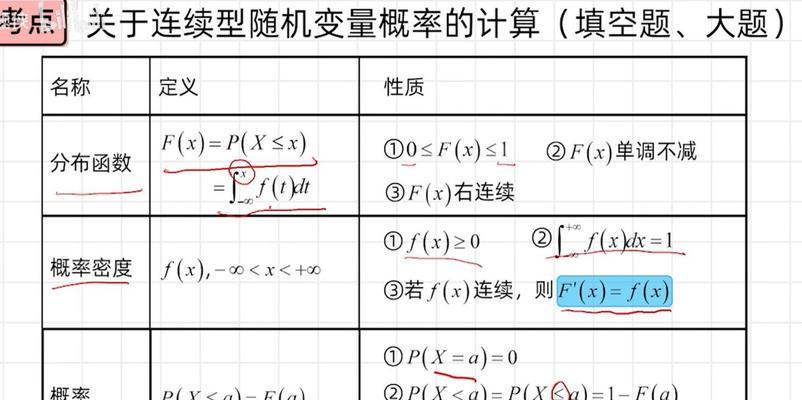 考点 关于连续型随机变量概率的计算（填空题、大题）
名称 定义 性质
分布函数 F(x)=P(X≤x) ①0≤F(x)≤1 ②F(x)单调不减
=∫_{-∞}^{x} f(t)dt ③F(x)右连续
概率密度 f(x),-∞<x<+∞ ①f(x)≥0 ②∫_{-∞}^{+∞} f(x)dx=1
③若f(x)连续，则F'(x)=f(x)
①P(X=a)=0
概率 P(X≤a)=F(a) ②P(X<a)=P(X≤a)=1-F(a)